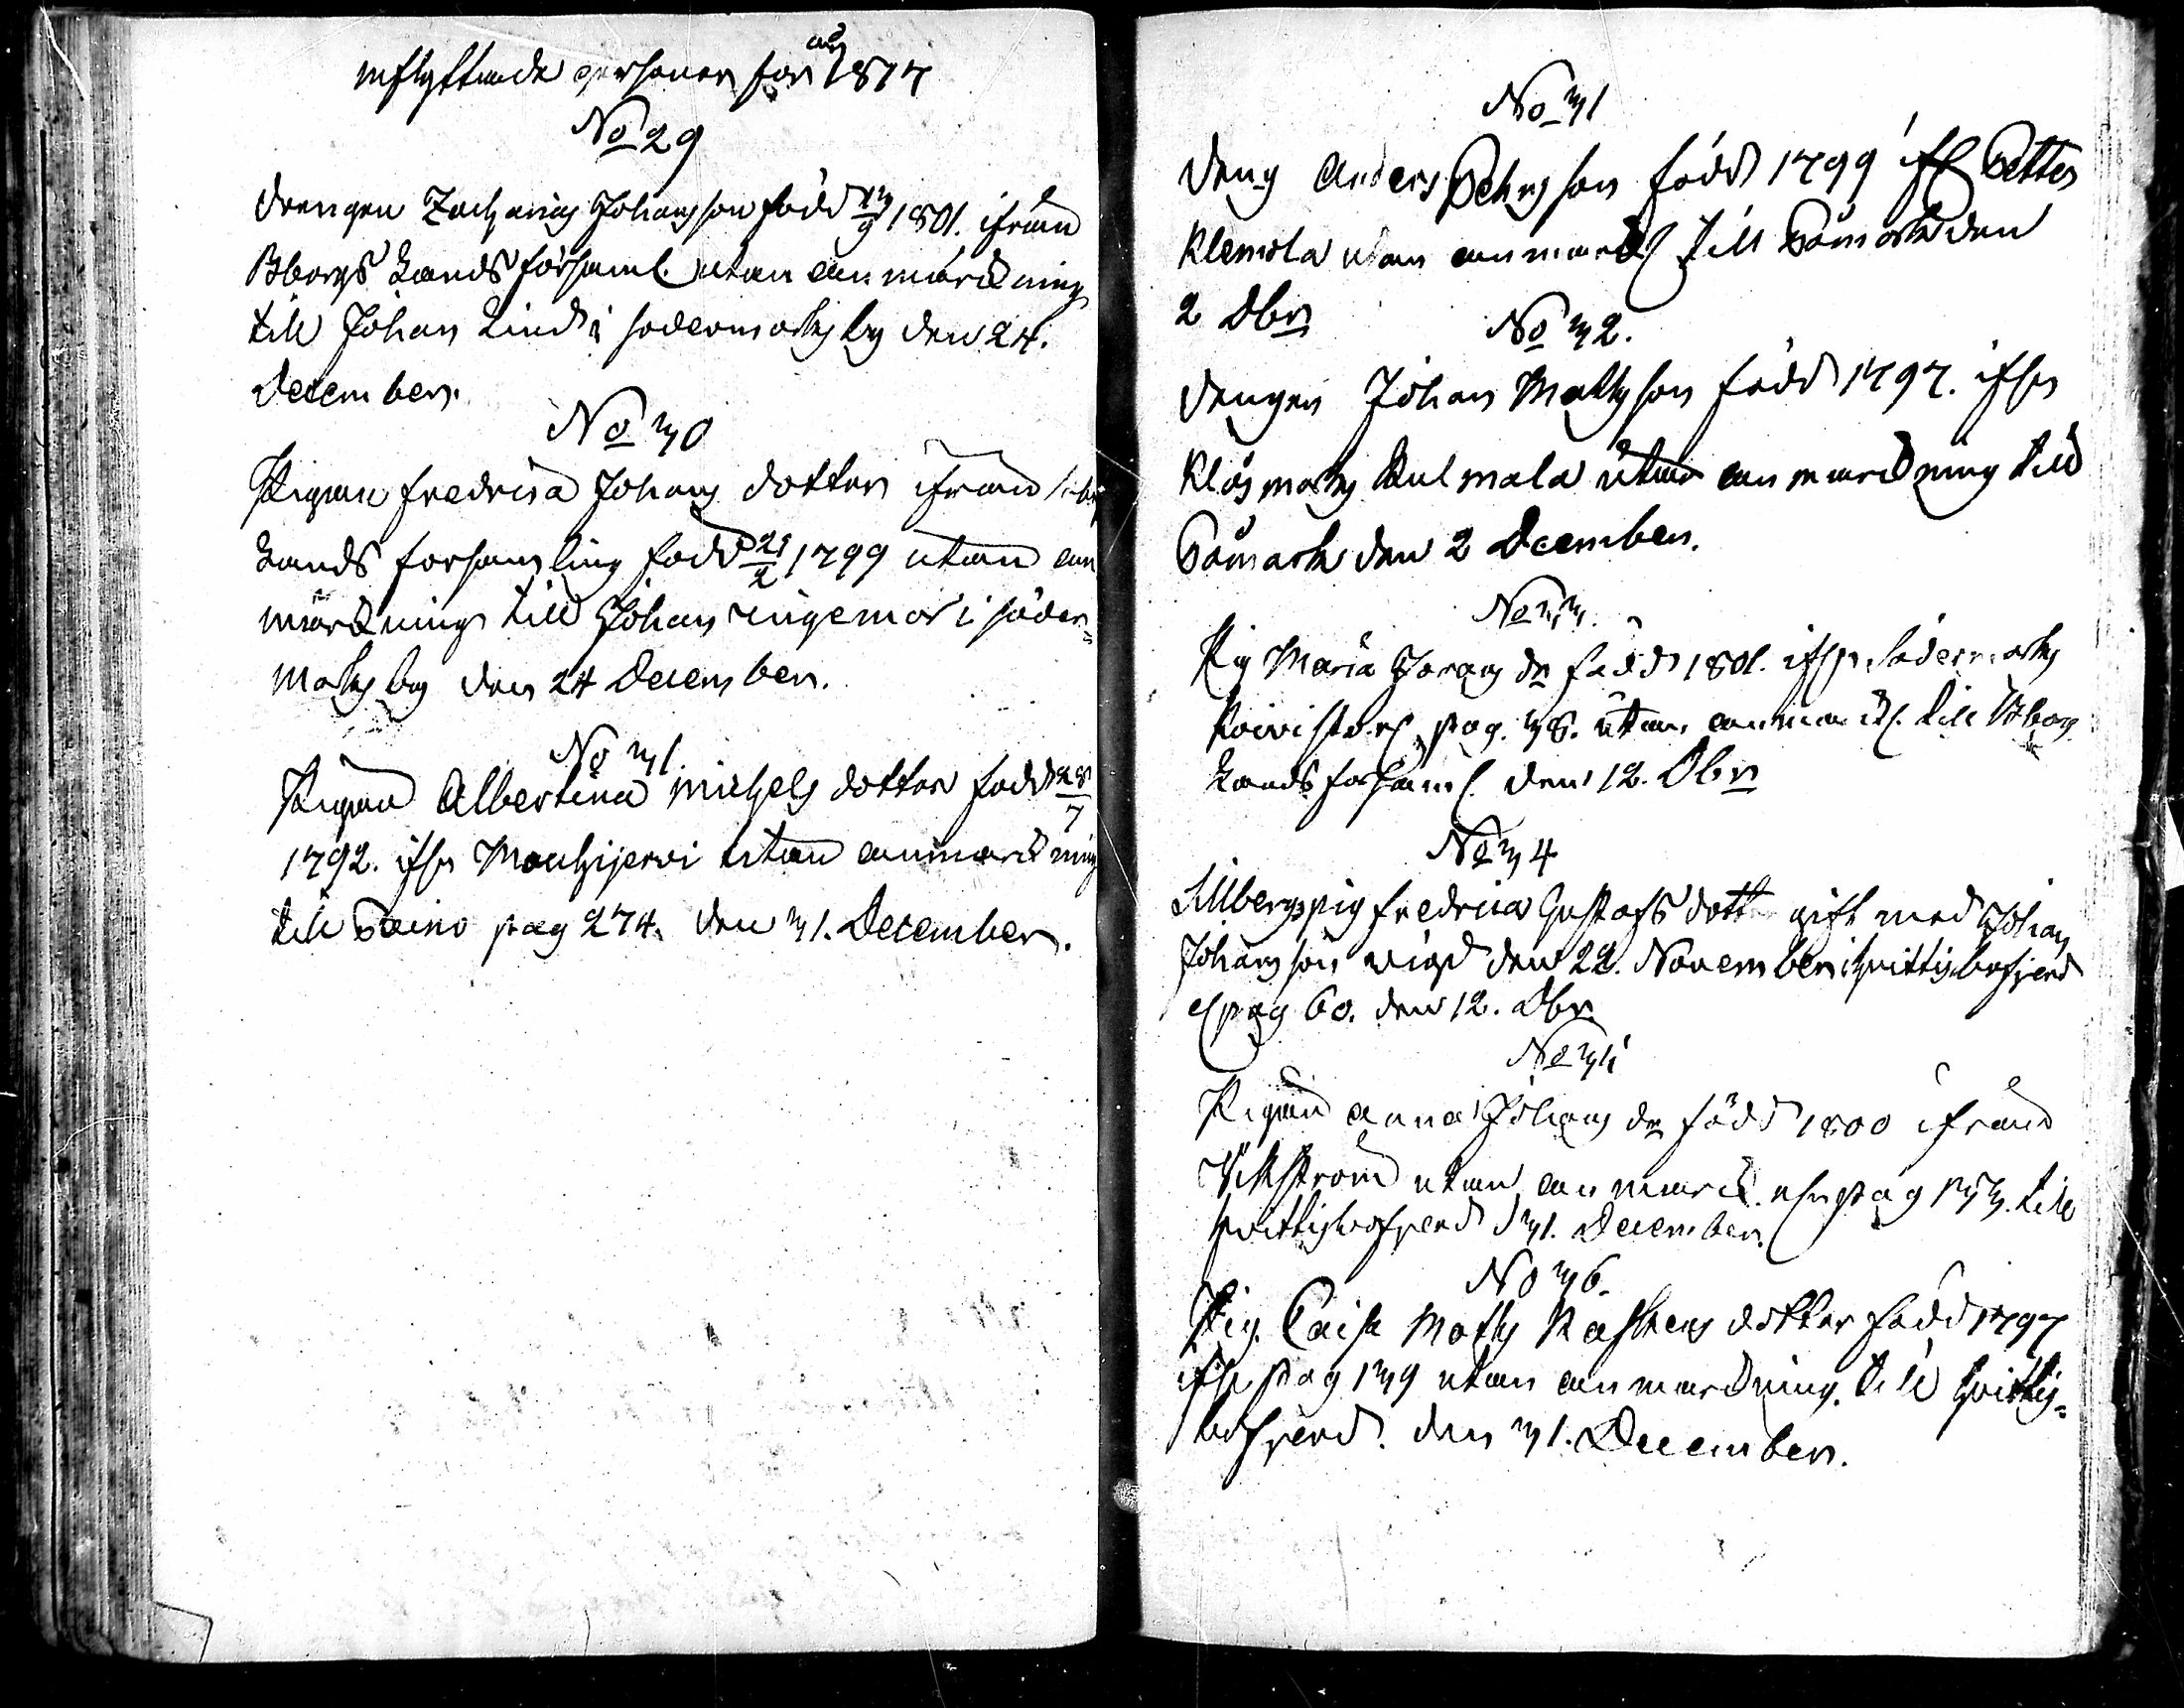 inflyttande personer för år 1817
No 29
Drengen Zacharias Johansson född 13/9 1801. ifrån
Bborgs Lands församl. utan anmärckning
till Johan Lind i södermarks by den 24.
December.
No 30
Pigan Fredrica Johans dotter ifrån
Lands forsamling född 21/2 1799 utan an
märckning till Johan Ingemar i söder=
marks by den 24 December.
No 31.
Pigan Albertina Michels dotter född 28/7
1792. ifrn Mouhijervi utan anmärckning
till Toino pag 274. den 31. December.
No 31
Dreng Anders Pehrsson född 1799 ifr Petter
Klemola utan anmärck till Påmark den
2 Dbr
No 32.
Drengen Johan Matsson född 1797. ifrn
Klåsmarks Kulmala utan anmärckning till
Påmark den 2 December.
No 33.
Pig Maria Jorans dr född 1801. ifrn Södermarks
Koivisto pag. 38. utan anmärck. till Bborgs
Lands församl. den 12. Dbr
No 34
Sillbergs pig Fredrica Gustafs dotter gift med Johan
Johansson vigd den 22. November i Hvittisbofjerd
pag 60. den 12. Dbr.
No 35
Pigan Anna Johans dr född 1800 ifrån
Vikström utan anmärck. pag 153. till
Hvittisbofjerd d 31. December.
No 36.
Pig. Caisa Mats dotter född 1797
ifrn pag 139 utan anmärckning. till Hvittis=
bofjerd. den 31. December.